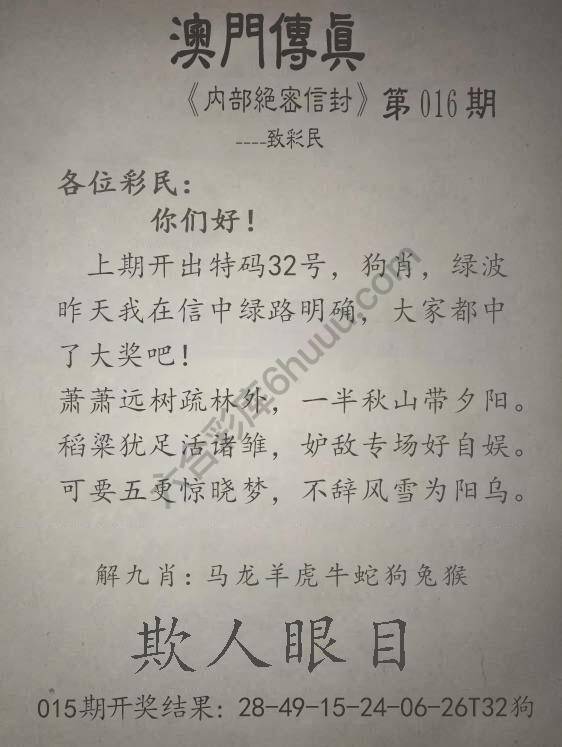 澳門傳眞
《内部絕密信封》第016期
----致彩民
各位彩民：
你们好！
上期开出特码32号，狗肖，绿波
昨天我在信中绿路明确，大家都中
了大奖吧！
萧萧远树疏林外，一半秋山带夕阳。
稻梁犹足活诸雏，妒敌专场好自娱。
可要五更惊晓梦，不辞风雪为阳乌。
六合彩库6huuu.com
解九肖：马龙羊虎牛蛇狗兔猴
欺人眼目
015期开奖结果：28-49-15-24-06-26T32狗